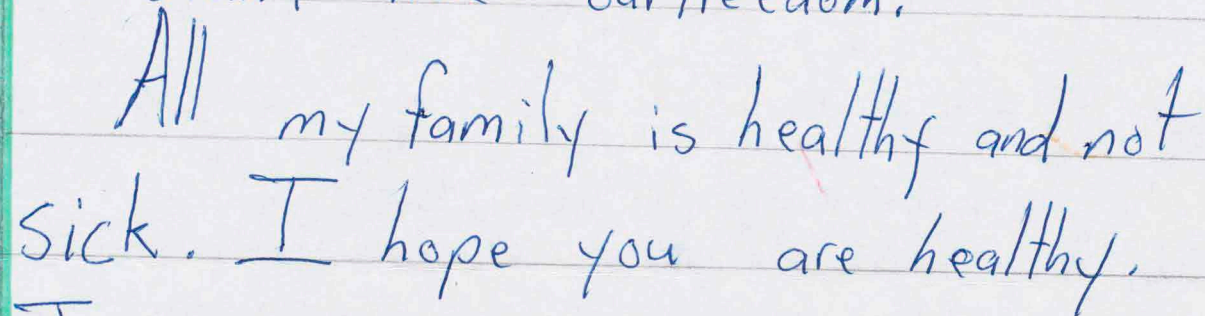 our freedom.
All my family is healthy and not
sick. I hope you are healthy.
I